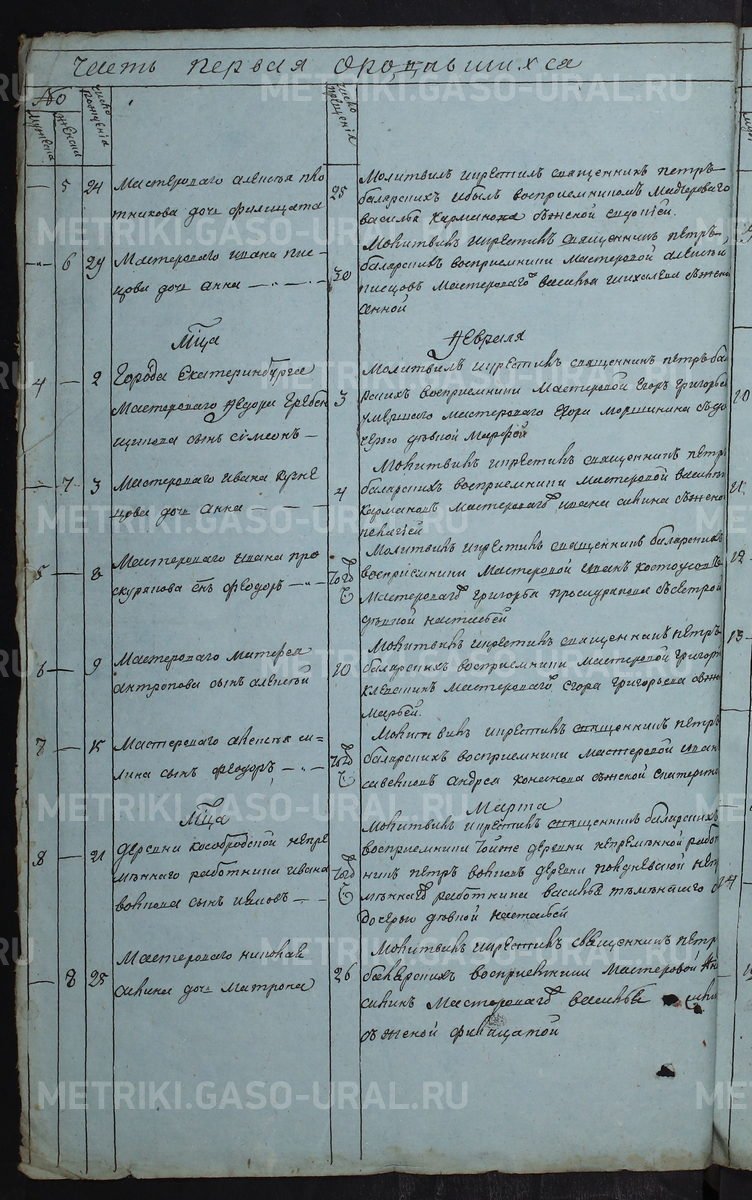 часть первая ородившихся
No
мужеска
женска
число рождения
число крещения
5 24 Мастероваго алексея пло
тникова дочь филицата
25 Молитвил икрестил священник петръ
баларских ибыл восприемником Мастероваго
василья Карманова зженой
6 29 Мастероваго ивана пис
цова дочь анна
30 Молитвил икрестил священник петръ
баларских восприемники Мастеровой алексей
писцовъ Мастероваго василья женою
анной
Мца Февраля
4 2 Города Екатеринбурга
Мастероваго Федора Гребен
щикова сынъ симеонъ
3 Молитвил икрестил священникъ петръ ба
ларских восприемники Мастеровой Егоръ Григорьев
умершаго Мастероваго Егора Моршинина здо
черью девкой Марфой
7 3 Мастероваго ивана кузне
цова дочь анна
4 Молитвил икрестил священникъ петръ
баларских восприемники мастеровой василий
Кармановъ Мастероваго ивана савина зженой
пелагией
5 8 Мастероваго ивана про
скурякова снъ феодоръ
Молитвил икрестил священник баларских
восприемники Мастеровой иван костоусовъ
Мастероваго григорья проскурякова ссестрой
девкой настасьей
6 9 Мастероваго Матвея
антропова сынъ алексей
10 Молитвил икрестил священник петръ
баларских восприемники мастеровой григорий
Мастероваго Егора Григорьева зженой
Марьей.
7 15 Мастероваго алексея си
лина сынъ феодоръ
Молитвил икрестил священник петръ
баларских восприемники мастеровой иван
андрея зженой екатериной
Мца Марта
8 21 деревни Кособродской непре
меннаго работника ивана
сынъ
Молитвил икрестил священник баларских
восприемники тойже деревни непременной работ
никъ петръ деревни полдневской неп
меннаго работника василья
дочерью девкой настасьей
8 25 Мастероваго николая
савина дочь Матрона
26 Молитвил икрестил священникъ петр
баларских восприемники мастеровой
савинъ Мастероваго василья
сженой филицатой
METRIKI.GASO-URAL.RU